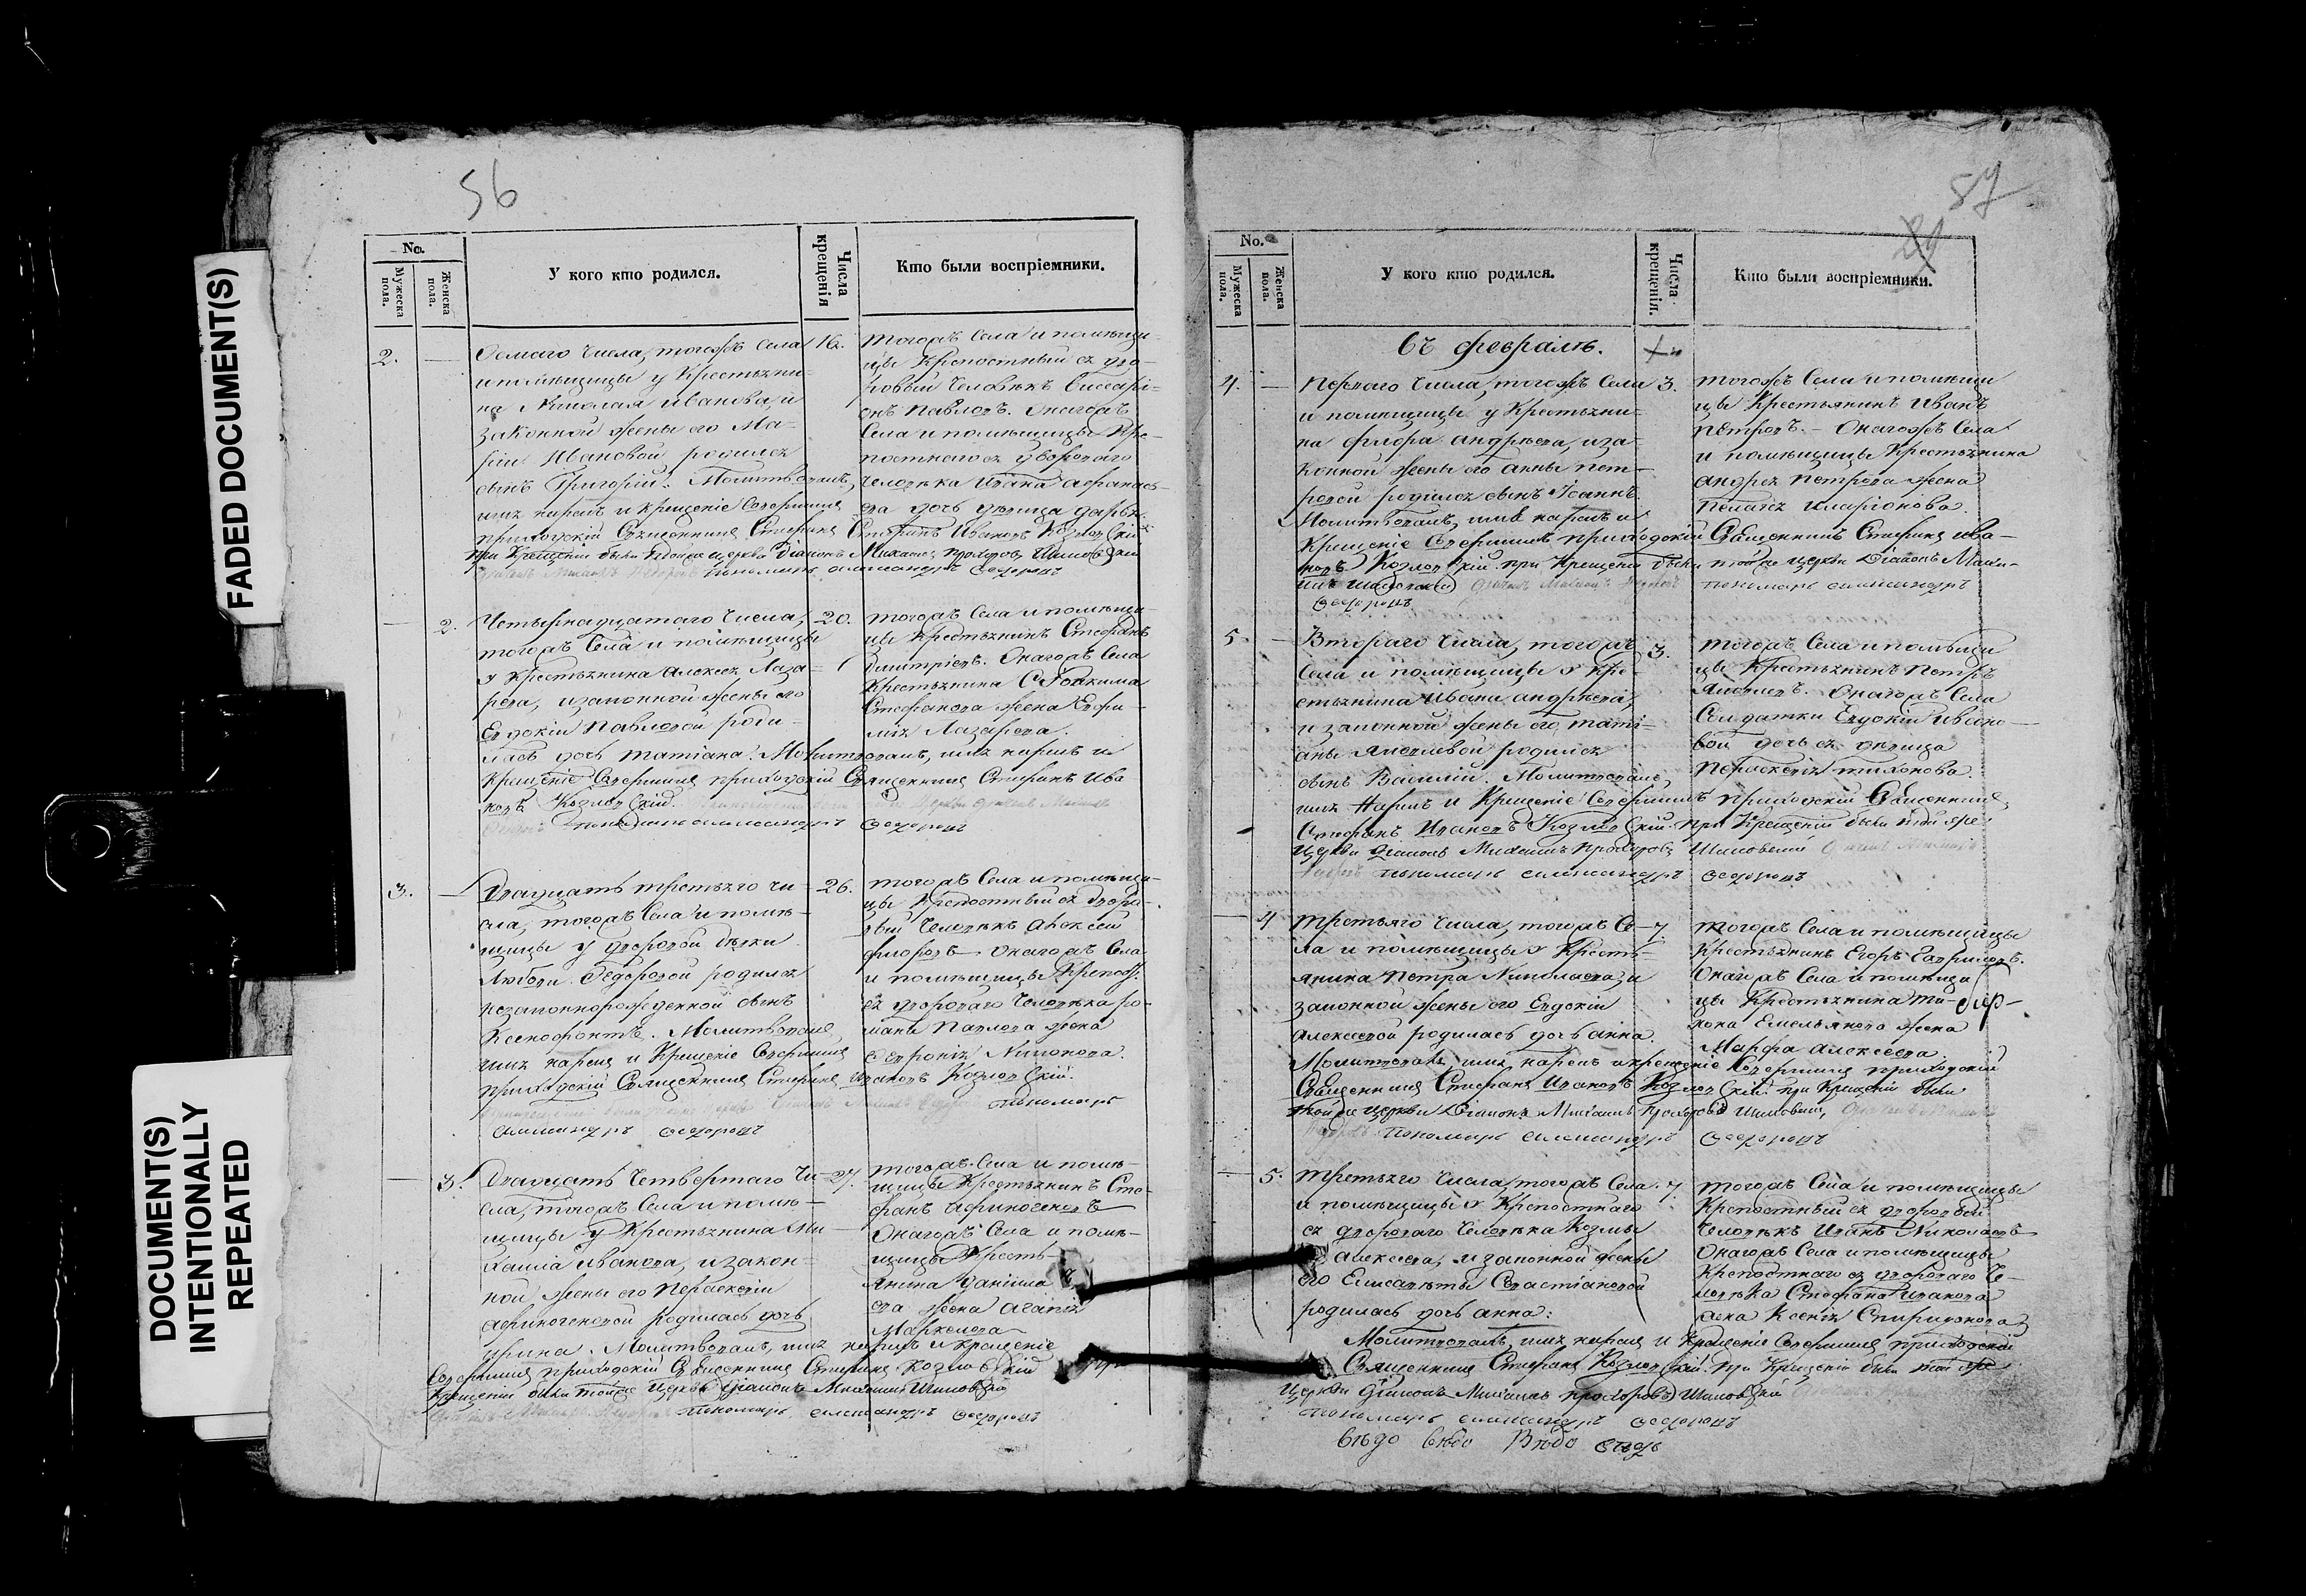 FADED DOCUMENT(S)
DOCUMENT(S)
INTENTIONALLY
REPEATED
56
No.
Мужеска пола.
Женска пола.
У кого кто родился.
Числа крещенія
Кто были воспріемники.
2.
Осмаго числа, тогожъ села
и помѣщицы у крестьяни-
на Николая Иванова, и
законной жены его Ма-
ріи Ивановой родился
сынъ Григорій. Молитвовалъ,
имя нарекъ и крещеніе совершилъ
приходскій священникъ Стефанъ Ивановъ Козловскій
при крещеніи были тойже церкви діаконъ Михаилъ Прохоровъ
пономарь Александръ Ѳедоровъ
16.
тогожъ села и помѣщи-
цы крепостный съ дво-
ровой человѣкъ Виссарі-
онъ Павловъ. Онагожъ
села и помѣщицы кре-
постнаго съ двороваго
человѣка Ивана Афанась-
ева дочь девица Дарья
2.
Четырнадцатаго числа,
тогожъ села и помѣщицы
у крестьянина Алексея Лаза-
рева, и законной жены его
Евдокіи Павловой роди-
лась дочь Татіана. Молитвовалъ, имя нарекъ и
крещеніе совершилъ приходскій священникъ Стефанъ Ива-
новъ Козловскій.
пономарь Александръ Ѳедоровъ
20.
тогожъ села и помѣщи-
цы крестьянинъ Стефанъ
Димитріевъ. Онагожъ села
крестьянина
Стефанова жена Евфи-
мія Лазарева.
3.
Двадцать третьяго чи-
сла, тогожъ села и помѣ-
щицы у дворовой дѣвки
Любови Ѳедоровой родился
незаконнорожденной сынъ
Ксенофонтъ. Молитвовалъ,
имя нарекъ и крещеніе совершилъ
приходскій священникъ Стефанъ Ивановъ Козловскій.
пономарь
Александръ Ѳедоровъ
26.
тогожъ села и помѣщи-
цы крепостный съ дворо-
вый человѣкъ Алексей
Флоровъ Онагожъ села
и помѣщицы крепост.
съ двороваго человѣка Ро-
мана Павлова жена
Февронія Никонова.
3.
Двадцать четвертаго чи-
сла, тогожъ села и помѣ-
щицы у крестьянина Ми-
хаила Иванова, и закон-
ной жены его Параскевіи
Афиногеновой родилась дочь
Ирина. Молитвовалъ, имя нарекъ и крещеніе
совершилъ приходскій священникъ Стефанъ Козловскій
крещеніи были тойже церкви діаконъ Михаилъ
пономарь Александръ Ѳедоровъ
27.
тогожъ села и помѣ-
щицы крестьянинъ Сте-
фанъ Афиногеновъ
Онагожъ села и помѣ-
щицы кресть-
янина Даніила
ева жена Агапія
Маркелова
57
No.
Мужеска пола.
Женска пола.
У кого кто родился.
Числа крещенія.
Кто были воспріемники.
Въ Февралѣ.
4.
Перваго числа, тогожъ села
и помѣщицы у крестьяни-
на Флора Андрѣева, и за-
конной жены его Анны Пет-
ровой родился сынъ Іоаннъ.
Молитвовалъ, имя нарекъ и
крещеніе совершилъ приходскій священникъ Стефанъ Ива-
новъ Козловскій при крещеніи были тойже церкви діаконъ Миха-
илъ
пономарь Александръ
Ѳедоровъ
3.
тогожъ села и помѣщи
цы крестьянинъ Иванъ
Петровъ. Онагожъ села
и помѣщицы крестьянина
Андрея Петрова жена
Пелагія Иларіонова.
5.
Втораго числа, тогожъ
села и помѣщицы у кре-
стьянина Ивана Андрѣева,
и законной жены его, Таті-
аны Яковлевой родился
сынъ Василій. Молитвовалъ,
имя нарекъ и крещеніе совершилъ приходскій священникъ
Стефанъ Ивановъ Козловскій. При крещеніи были тойже
церкви діаконъ Михаилъ Прохоровъ
пономарь Александръ Ѳедоровъ
3.
тогожъ села и помѣщи
цы крестьянинъ Петръ
Яковлевъ. Онагожъ села
солдатки Евдокіи Ивано-
вой дочь ея девица
Параскевія Тихонова.
4
Третьяго числа, тогожъ се-
ла и помѣщицы у кресть-
янина Петра Николаева, и
законной жены его Евдокіи
Алексеевой родилась дочь Анна.
Молитвовалъ, имя нарекъ и крещеніе совершилъ приходскій
священникъ Стефанъ Ивановъ Козловскій. при крещеніи были
тойже церкви діаконъ Михаилъ Прохоровъ
пономарь Александръ Ѳедоровъ
7.
тогожъ села и помѣщицы
крестьянинъ Егоръ Гавриловъ.
Онагожъ села и помѣщи
цы крестьянина Ти-
хона Емельянова жена
Марфа Алексеева.
5.
Третьяго числа, тогожъ села
и помѣщицы у крепостнаго
съ двороваго человѣка Козмы
Алексеева, и законной жены
его Елисаветы Севастіановой
родилась дочь Анна:
Молитвовалъ, имя нарекъ и крещеніе совершилъ приходскій
священникъ Стефанъ Козловскій. При крещеніи были тойже
церкви діаконъ Михаилъ Прохоровъ
пономарь Александръ Ѳедоровъ
7.
тогожъ села и помѣщицы
крепостный съ дворовой
человѣкъ Иванъ Николаевъ
Онагожъ села и помѣщицы
крепостнаго съ двороваго че-
ловѣка Стефана Иванова
жена Ксенія Спиридонова